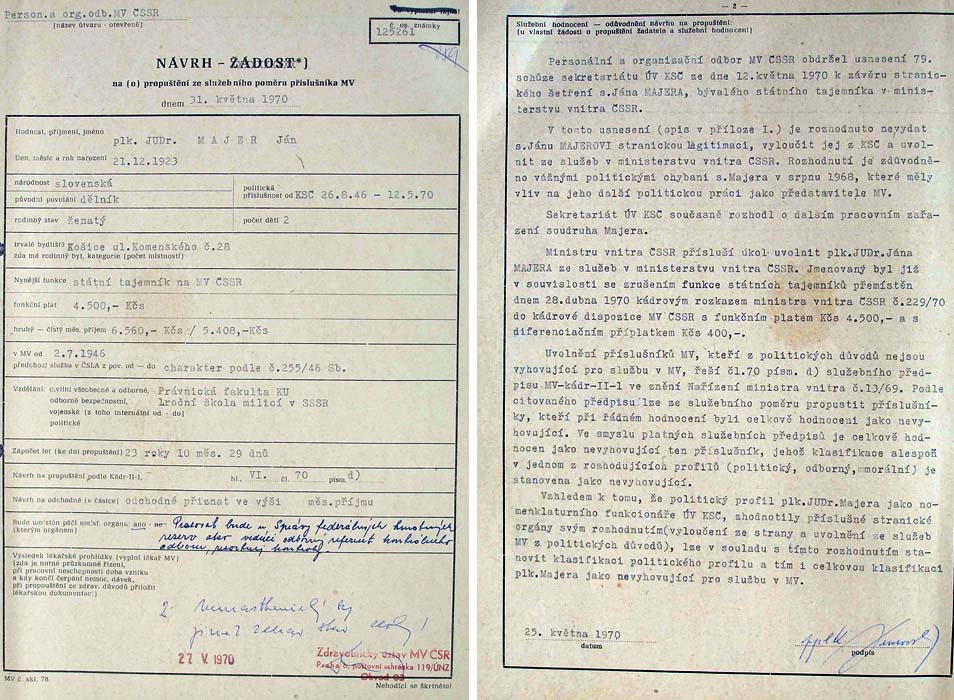 Person.a org.odb.MV ČSSR
(název útvaru - otevřeně)
Č. os. známky
125261
NÁVRH - ŽÁDOST*)
na (o) propuštění ze služebního poměru příslušníka MV
dnem 31. května 1970
Hodnost, příjmení, jméno
plk. JUDr. M A J E R Ján
Den, měsíc a rok narození 21.12.1923
národnost slovenská
politická
příslušnost od KSC 26.8.46 - 12.5.70
původní povolání dělník
rodinný stav ženatý
počet dětí 2
trvalé bydliště Košice ul.Komenského č.28
zda má rodinný byt, kategorie (počet místností)
Nynější funkce státní tajemník na MV ČSSR
funkční plat 4.500,- Kčs
hrubý — čistý měs. příjem 6.560,- Kčs / 5.408,-Kčs
v MV od 2.7.1946
předchozí služba v ČSLA z pov. od — do charakter podle č.255/46 Sb.
Vzdělání: civilní všeobecné a odborné, Právnická fakulta KU
odborné bezpečnostní, 1roční škola milicí v SSSR
vojenské (z toho internátní od - do)
politické
Zápočet let (ke dni propuštění) 23 roky 10 měs. 29 dnů
Návrh na propuštění podle Kádr-II-1, hl. VI. čl. 70 písm. d)
Návrh na odchodné (v částce) odchodné přiznat ve výši měs.příjmu
Bude umístěn péčí umísť. orgánu: ano - ne Pracovat bude u Správy federálných hmotných
(kterým orgánem) rezerv ako vedúci odborný referent kontrolného
odboru, rezortnej kontroly.
Výsledek lékařské prohlídky (vyplní lékař MV)
(zda je nutné průzkumné řízení,
při pracovní neschopnosti doba vzniku
a kdy končí čerpání nemoc. dávek,
při propuštění ze zdrav. důvodů přiložit
lékařskou dokumentaci:)
27 V. 1970
Zdravotnický ústav MV ČSR
Praha 6, poštovní schránka 119/ÚNZ
Obvod 03
MV č. skl. 78
Nehodící se škrtněte!
— 2 —
Služební hodnocení — odůvodnění návrhu na propuštění:
(u vlastní žádosti o propuštění žadatele a služební hodnocení)
Personální a organizační odbor MV ČSSR obdržel usnesení 79.
schůze sekretariátu ÚV KSČ ze dne 12.května 1970 k závěru stranic-
kého šetření s.Jána MAJERA, bývalého státního tajemníka v minis-
terstvu vnitra ČSSR.
V tomto usnesení (opis v příloze I.) je rozhodnuto nevydat
s.Jánu MAJEROVI stranickou legitimaci, vyloučit jej z KSČ a uvol-
nit ze služeb v ministerstvu vnitra ČSSR. Rozhodnutí je zdůvodně-
no vážnými politickými chybami s.Majera v srpnu 1968, které měly
vliv na jeho další politickou práci jako představitele MV.
Sekretariát ÚV KSČ současně rozhodl o dalším pracovním zařa-
zení soudruha Majera.
Ministru vnitra ČSSR přísluší úkol uvolnit plk.JUDr.Jána
MAJERA ze služeb v ministerstvu vnitra ČSSR. Jmenovaný byl již
v souvislosti se zrušením funkce státních tajemníků přemístěn
dnem 28.dubna 1970 kádrovým rozkazem ministra vnitra ČSSR č.229/70
do kádrové dispozice MV ČSSR s funkčním platem Kčs 4.500,- a s
diferenciačním příplatkem Kčs 400,-.
Uvolnění příslušníků MV, kteří z politických důvodů nejsou
vyhovující pro službu v MV, řeší čl.70 písm. d) služebního před-
pisu MV-kádr-II-1 ve znění Nařízení ministra vnitra č.13/69. Podle
citovaného předpisu lze ze služebního poměru propustit příslušní-
ky, kteří při řádném hodnocení byli celkově hodnoceni jako nevy-
hovující. Ve smyslu platných služebních předpisů je celkově hod-
nocen jako nevyhovující ten příslušník, jehož klasifikace alespoň
v jednom z rozhodujících profilů (politický, odborný, morální) je
stanovena jako nevyhovující.
Vzhledem k tomu, že politický profil plk.JUDr.Majera jako no-
menklaturního funkcionáře ÚV KSČ, zhodnotily příslušné stranické
orgány svým rozhodnutím(vyloučení ze strany a uvolnění ze služeb
MV z politických důvodů), lze v souladu s tímto rozhodnutím sta-
novit klasifikaci politického profilu a tím i celkovou klasifikaci
plk.Majera jako nevyhovující pro službu v MV.
25. května 1970
datum
podpis